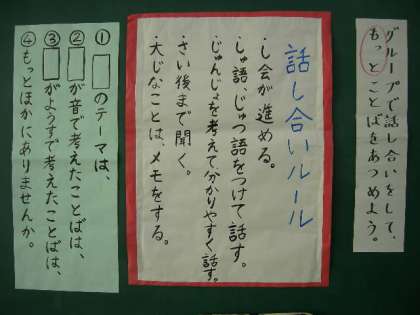 グループで話し合いをして、
もっとことばをあつめよう。
話し合いルール
・し会が進める。
・しゅ語、じゅつ語をつけて話す。
・じゅんじょを考えて分かりやすく話す。
・さい後まで聞く。
・大じなことは、メモをする。
①□のテーマは、
②□が音で考えたことばは、
③□がようすで考えたことばは、
④もっとほかにありませんか。